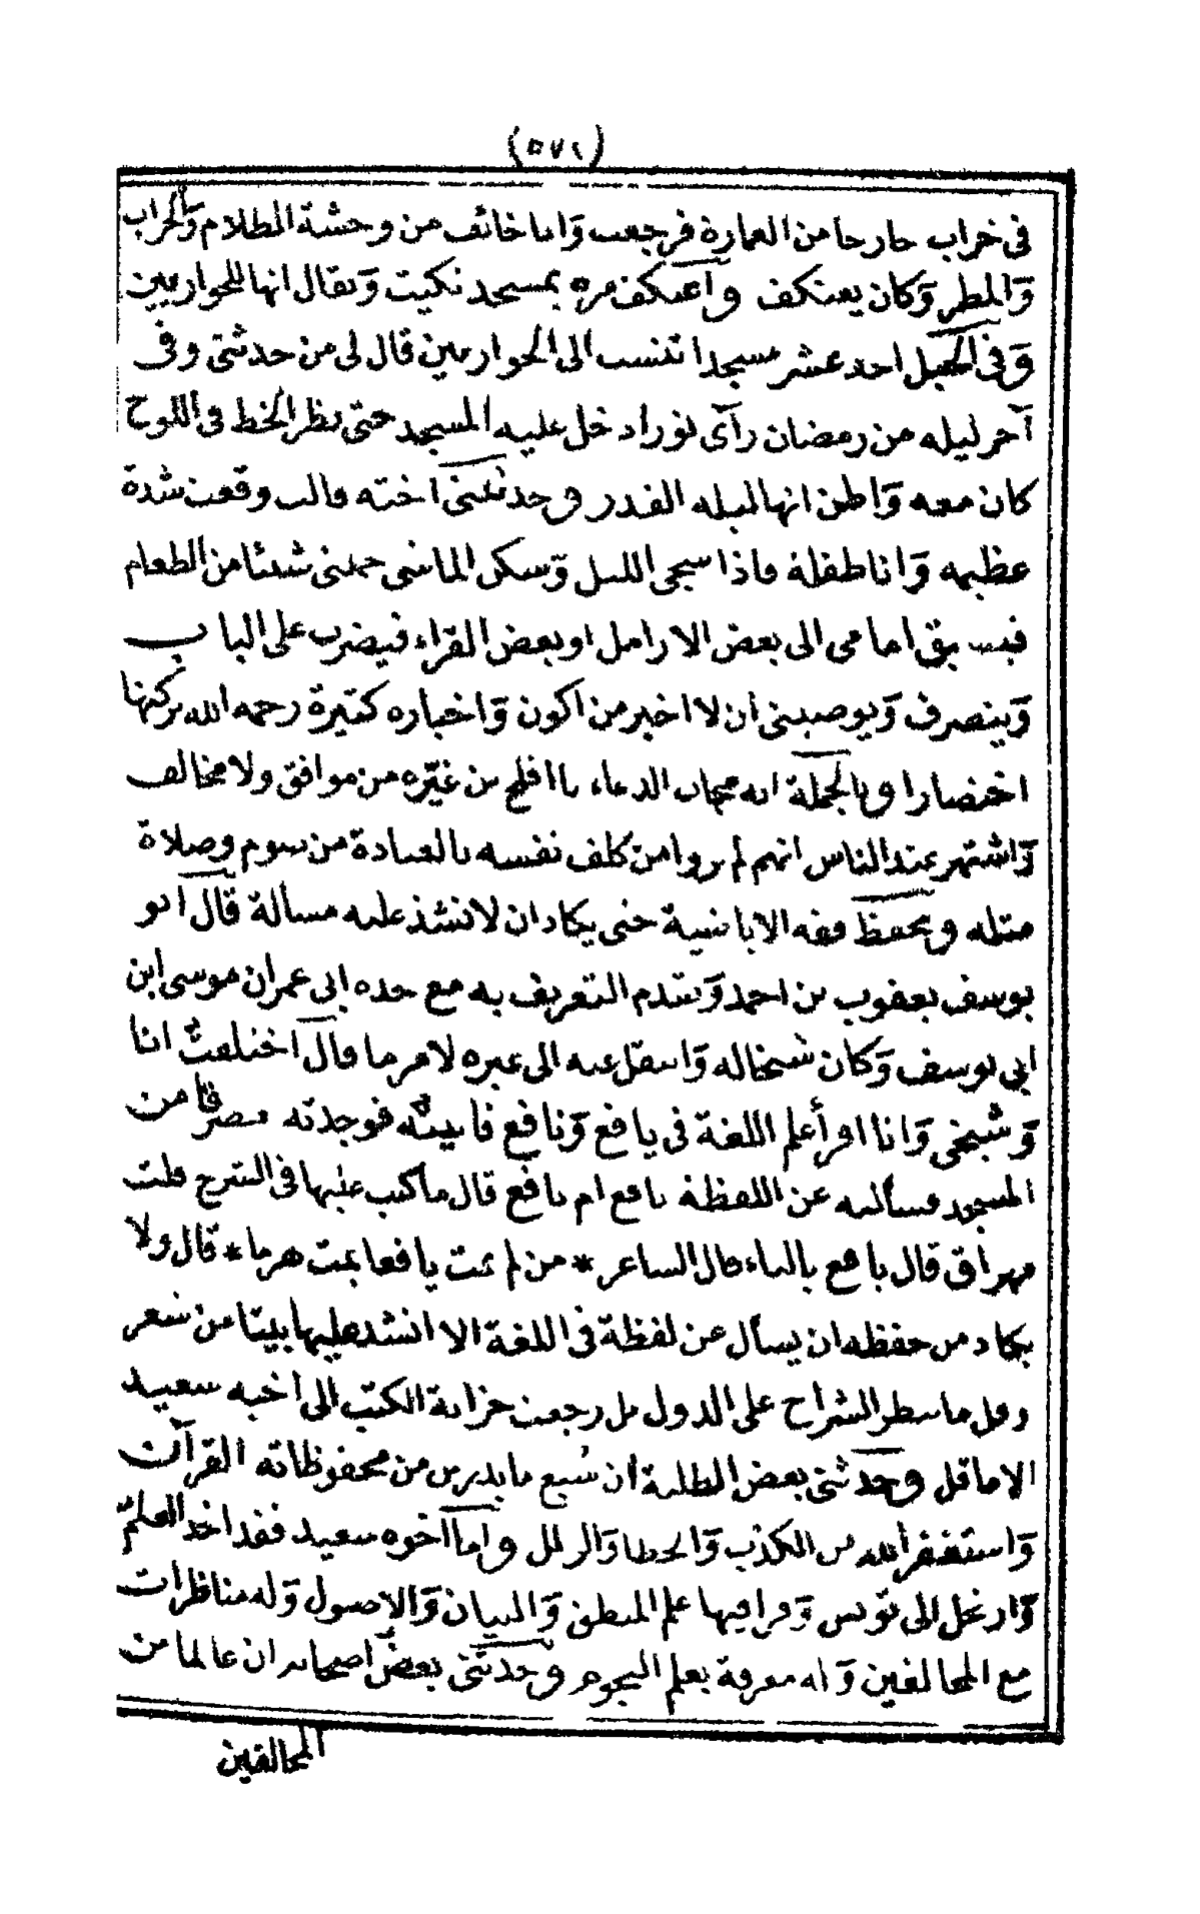 (٥٧١)
فى خراب خارجا من العمارة فرجعت وانا خائف من وحشة الظلام والخراب
والمطر وكان يعتكف واعتكف مرة بمسجد تكيت ويقال انها للحواريين
وفى الجبل احد عشر مسجدا تنسب الى الحواريين قال لى من حدثنى وفى
آخر ليله من رمضان رآى نورا دخل عليه المسجد حتى نظر الخط فى اللوح
كان معه واظن انها ليله القدر وحدثتنى اخته قالت وقعت شدة
عظيمه وانا طفلة فاذا سجى الليل وسكن الماشى حملنى شيئا من الطعام
فيسبق امامى الى بعض الارامل او بعض القراء فيضرب على الباب
وينصرف ويوصينى ان لا اخبر من اكون واخباره كثيرة رحمه الله تركتها
اختصارا وبالجملة انه مجاب الدعاء ما افلح من غيّره من موافق ولا مخالف
واشتهر عند الناس انهم لم يروا من كلف نفسه بالعبادة من صوم وصلاة
مثله ويحفظ فقه الاباضية حتى يكاد ان لا تشذ عليه مسألة قال ابو
يوسف يعقوب بن احمد وتقدم التعريف به مع جده ابى عمران موسى ابن
ابى يوسف وكان شيخا له وانتقل عنه الى غيره لامر ما قال اختلفت انا
وشيخى وانا اقرأ علم اللغة فى يافع ونافع فاتيته فوجدته منصرفا من
المسجد فسألته عن اللفظة يافع ام نافع قال ما كتب عليها فى الشرح قلت
مهراق قال يافع بالياء قال الشاعر * من لم يمت يافعا يمت هرما * قال ولا
يكاد من حفظه ان يسأل عن لفظة فى اللغة الا انشد عليها بيتا من شعر
وقل ما سطر الشراح على الدول بل رجعت خزانة الكتب الى اخيه سعيد
الا ما قل وحدثنى بعض الطلبة ان سُبع ما يدرس من محفوظاته القرآن
واستغفر الله من الكذب والخطا والزلل واما اخوه سعيد فقد اخذ العلم
وارتحل الى تونس وقرا فيها علم المنطق والبيان والاصول وله مناظرات
مع المخالفين وله معرفة بعلم النجوم وحدثنى بعض اصحابه ان عالما من
المخالفين